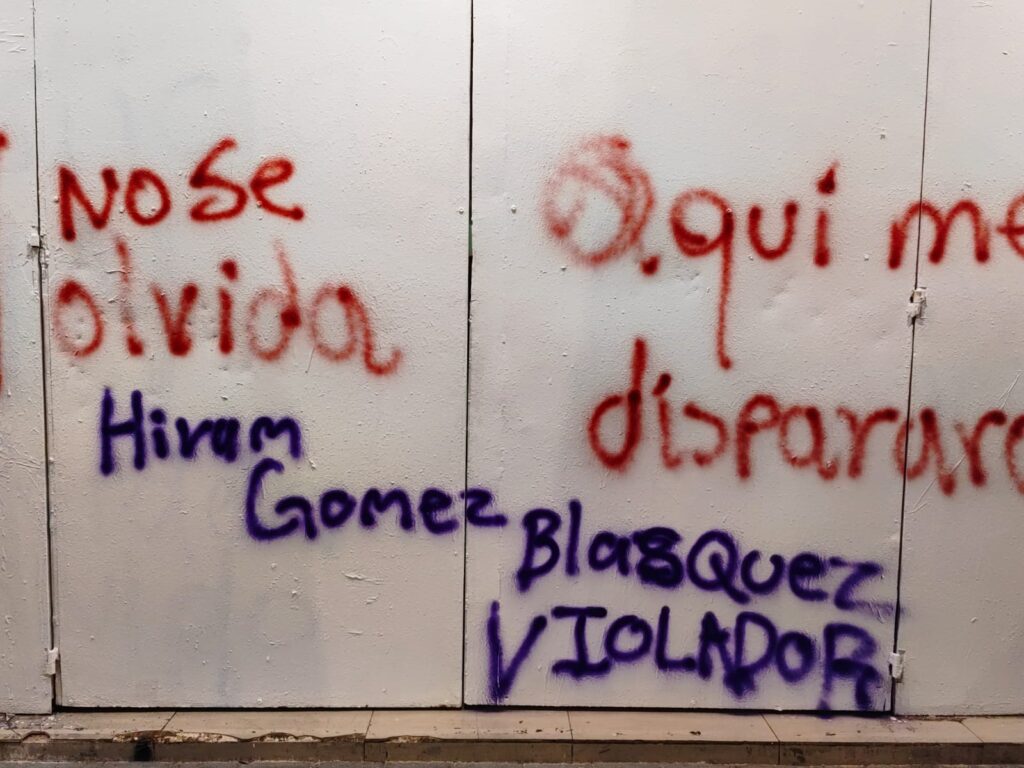 NO SE
olvida
aquí me
dispararo
Hiram
Gomez
Blasquez
VIOLADOR